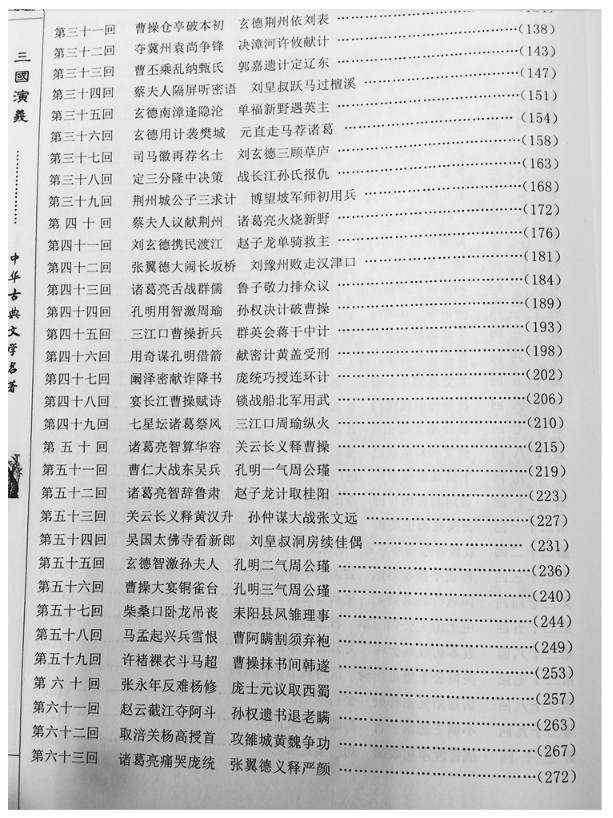 三國演義
中华古典文学名著
第三十一回 曹操仓亭破本初 玄德荆州依刘表
第三十二回 夺冀州袁尚争锋 决漳河许攸献计 (138)
第三十三回 曹丕乘乱纳甄氏 郭嘉遗计定辽东 (143)
第三十四回 蔡夫人隔屏听密语 刘皇叔跃马过檀溪 (147)
第三十五回 玄德南漳逢隐沦 单福新野遇英主 (151)
第三十六回 玄德用计袭樊城 元直走马荐诸葛 (154)
第三十七回 司马徽再荐名士 刘玄德三顾草庐 (158)
第三十八回 定三分隆中决策 战长江孙氏报仇 (163)
第三十九回 荆州城公子三求计 博望坡军师初用兵 (168)
第四十回 蔡夫人议献荆州 诸葛亮火烧新野 (172)
第四十一回 刘玄德携民渡江 赵子龙单骑救主 (176)
第四十二回 张翼德大闹长坂桥 刘豫州败走汉津口 (181)
第四十三回 诸葛亮舌战群儒 鲁子敬力排众议 (184)
第四十四回 孔明用智激周瑜 孙权决计破曹操 (189)
第四十五回 三江口曹操折兵 群英会蒋干中计 (193)
第四十六回 用奇谋孔明借箭 献密计黄盖受刑 (198)
第四十七回 阚泽密献诈降书 庞统巧授连环计 (202)
第四十八回 宴长江曹操赋诗 锁战船北军用武 (206)
第四十九回 七星坛诸葛祭风 三江口周瑜纵火 (210)
第五十回 诸葛亮智算华容 关云长义释曹操 (215)
第五十一回 曹仁大战东吴兵 孔明一气周公瑾 (219)
第五十二回 诸葛亮智辞鲁肃 赵子龙计取桂阳 (223)
第五十三回 关云长义释黄汉升 孙仲谋大战张文远 (227)
第五十四回 吴国太佛寺看新郎 刘皇叔洞房续佳偶 (231)
第五十五回 玄德智激孙夫人 孔明二气周公瑾 (236)
第五十六回 曹操大宴铜雀台 孔明三气周公瑾 (240)
第五十七回 柴桑口卧龙吊丧 耒阳县凤雏理事 (244)
第五十八回 马孟起兴兵雪恨 曹阿瞒割须弃袍 (249)
第五十九回 许褚裸衣斗马超 曹操抹书间韩遂 (253)
第六十回 张永年反难杨修 庞士元议取西蜀 (257)
第六十一回 赵云截江夺阿斗 孙权遗书退老瞒 (263)
第六十二回 取涪关杨高授首 攻雒城黄魏争功 (267)
第六十三回 诸葛亮痛哭庞统 张翼德义释严颜 (272)